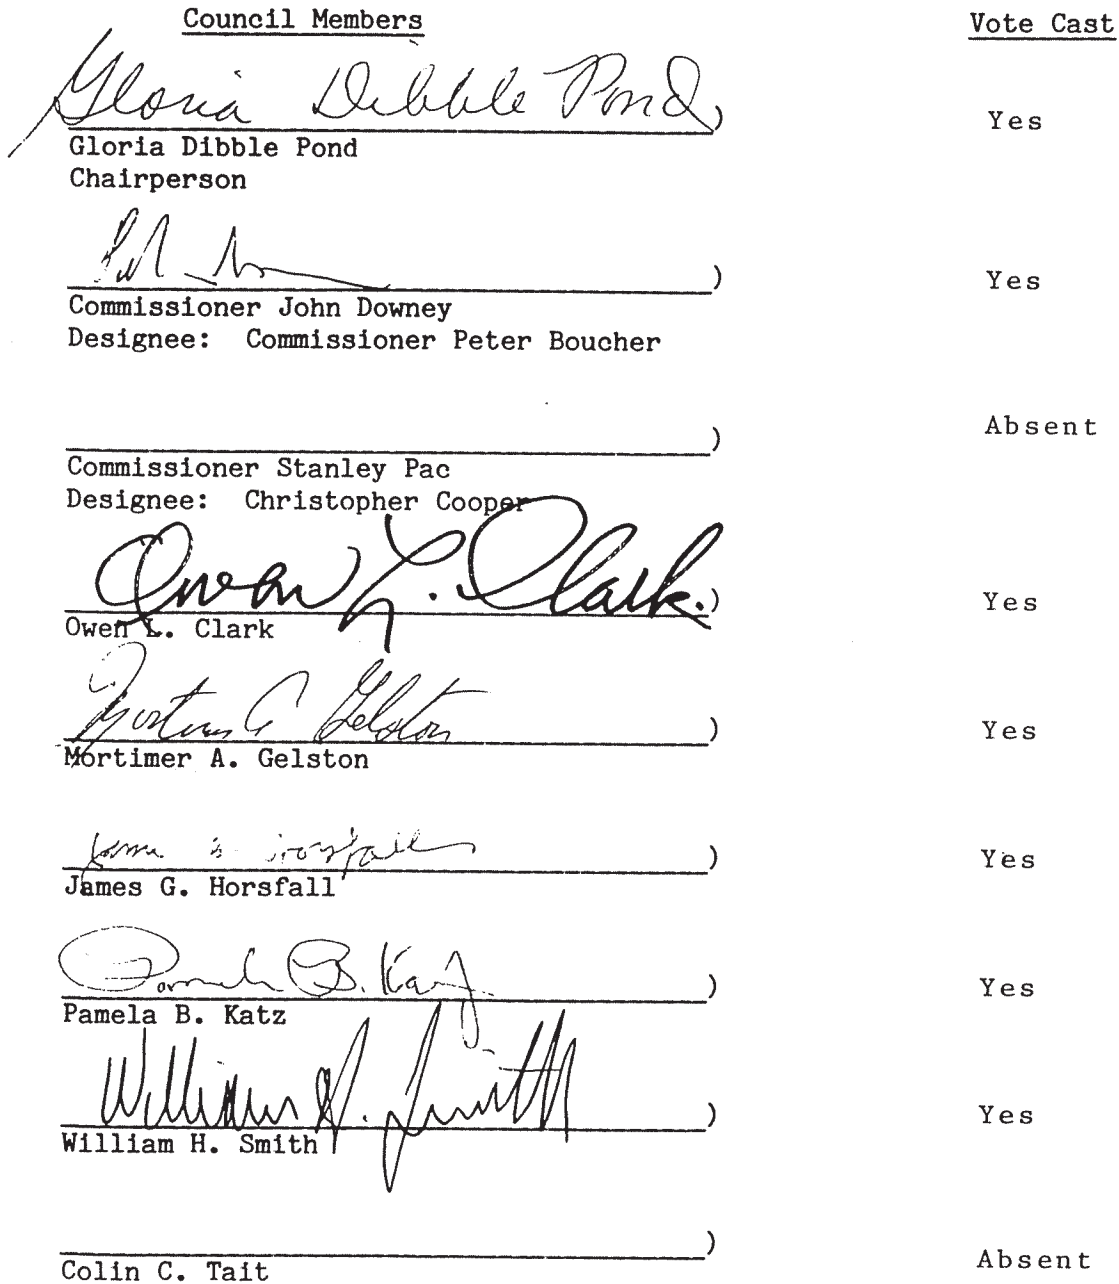 Council Members Vote Cast
Gloria Dibble Pond ) Yes
Gloria Dibble Pond
Chairperson
) Yes
Commissioner John Downey
Designee: Commissioner Peter Boucher
) Absent
Commissioner Stanley Pac
Designee: Christopher Cooper
Owen L. Clark. ) Yes
Owen L. Clark
Mortimer A Gelston ) Yes
Mortimer A. Gelston
James G Horsfall ) Yes
James G. Horsfall
Pamela B. Katz ) Yes
Pamela B. Katz
William H. Smith ) Yes
William H. Smith
) Absent
Colin C. Tait